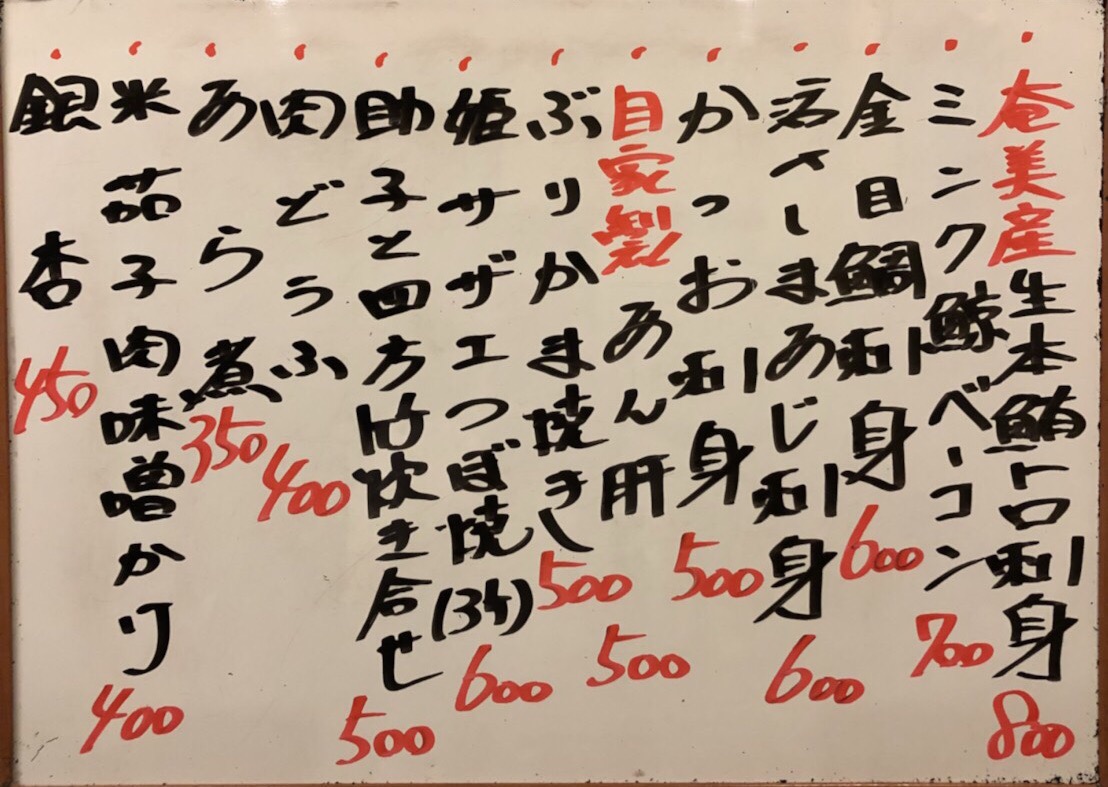 奄美産生本鮪トロ刺身 800
ミンク鯨ベーコン 700
金目鯛刺身 600
活〆しまあじ刺身 600
かつお刺身 500
自家製あん肝 500
ぶりかま焼き 500
姫サザエつぼ焼(3ヶ) 600
助子と四方竹炊き合せ 500
肉どうふ 400
あら煮 350
米茄子肉味噌かけ 400
銀杏 450